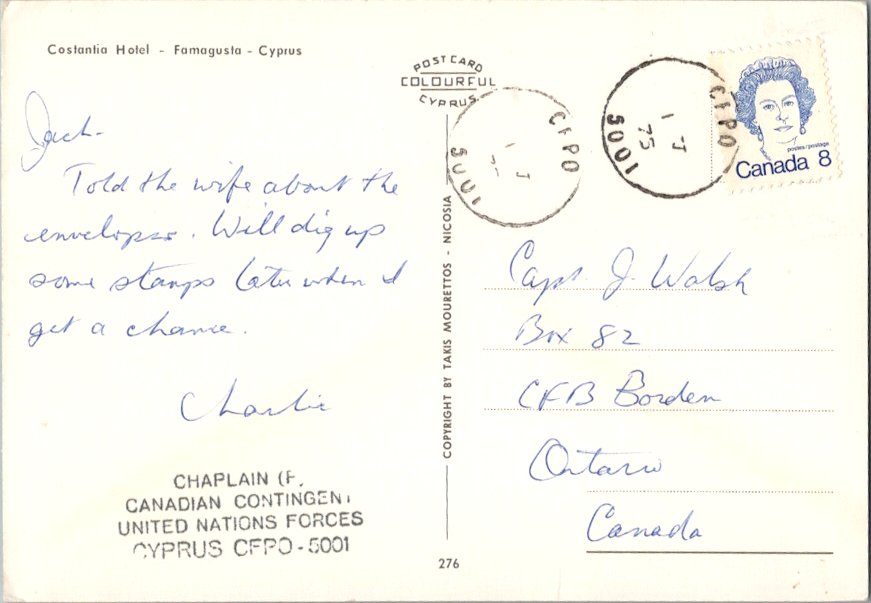 Costantia Hotel - Famagusta - Cyprus
POSTCARD
COLOURFUL
CYPRUS
CFPO
5001
I J
75
CFPO
5001
I J
75
postes/postage
Canada 8
Jack-
Told the wife about the
envelopes. Will dig up
some stamps later when I
get a chance.
Charlie
CHAPLAIN (P.
CANADIAN CONTINGENT
UNITED NATIONS FORCES
CYPRUS CFPO-5001
COPYRIGHT BY TAKIS MOURETTOS - NICOSIA
276
Capt J. Walsh
Box 82
CFB Borden
Ontario
Canada